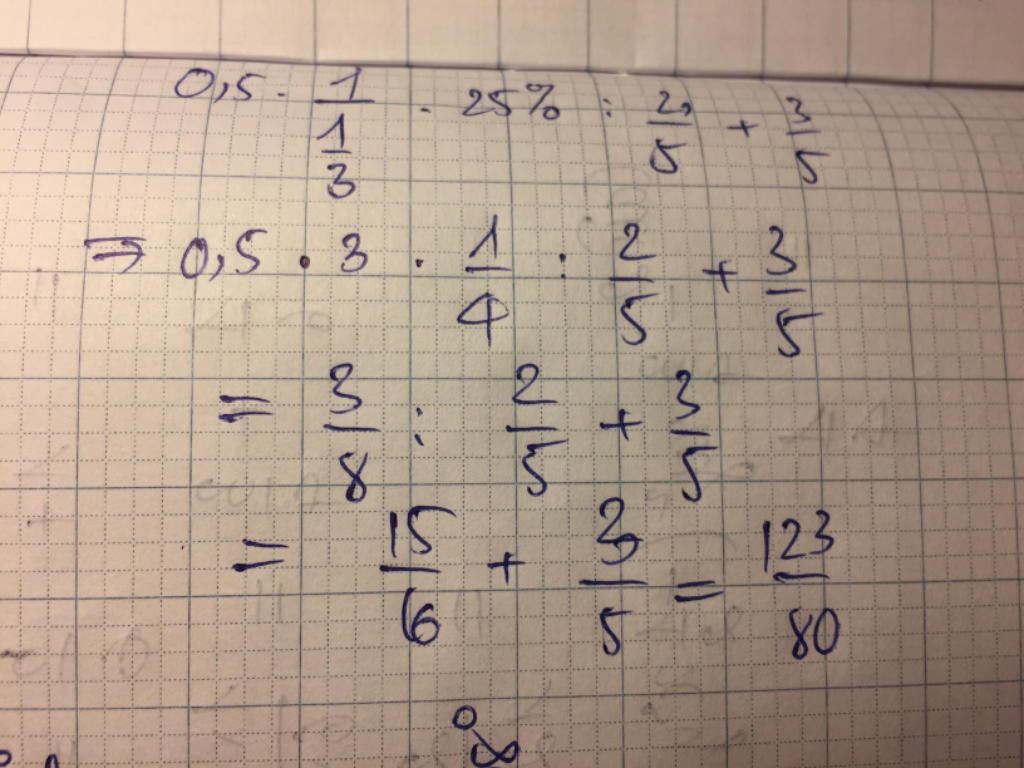 0,5 · 1/(1/3) · 25% : 2/5 + 3/5
⇒ 0,5 · 3 · 1/4 : 2/5 + 3/5
= 3/8 : 2/5 + 3/5
= 15/16 + 3/5 = 123/80